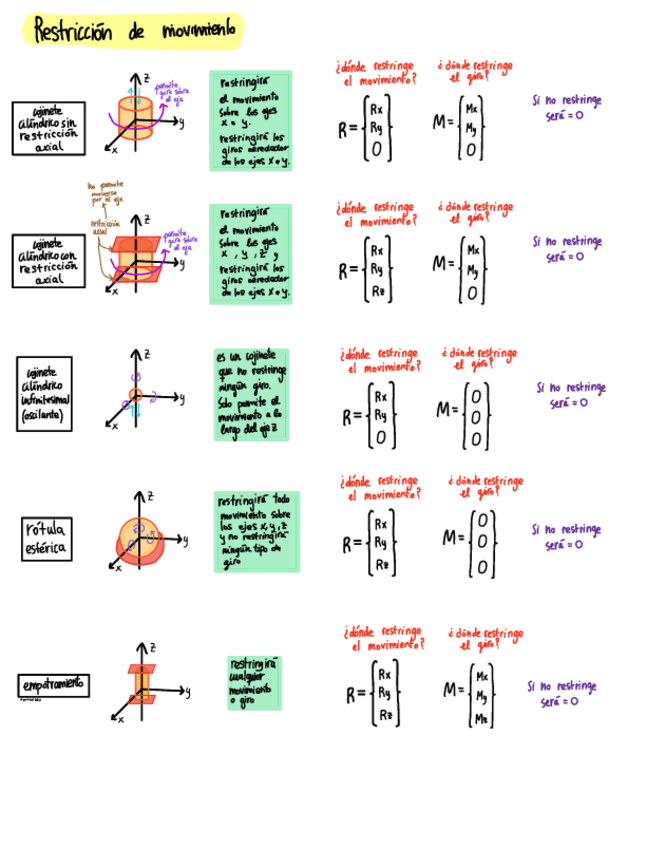 Restricción de movimiento
cojinete
cilíndrico sin
restricción
axial
z
y
x
permite
giro sobre
el eje
restringirá
el movimiento
sobre los ejes
x e y.
restringirá los
giros alrededor
de los ejes x e y.
¿dónde restringe
el movimiento?
R = { Rx
Ry
0 }
¿dónde restringe
el giro?
M = { Mx
My
0 }
Si no restringe
será = 0
no permite
moverse
por el eje
restricción
axial
cojinete
cilíndrico con
restricción
axial
z
y
x
permite
giro sobre
el eje
restringirá
el movimiento
sobre los ejes
x, y, z y
restringirá los
giros alrededor
de los ejes x e y.
¿dónde restringe
el movimiento?
R = { Rx
Ry
Rz }
¿dónde restringe
el giro?
M = { Mx
My
0 }
Si no restringe
será = 0
cojinete
cilíndrico
infinitesimal
(oscilante)
z
y
x
es un cojinete
que no restringe
ningún giro.
Solo permite el
movimiento a lo
largo del eje z
¿dónde restringe
el movimiento?
R = { Rx
Ry
0 }
¿dónde restringe
el giro?
M = { 0
0
0 }
Si no restringe
será = 0
rótula
esférica
z
y
x
restringirá todo
movimiento sobre
los ejes x, y, z
y no restringirá
ningún tipo de
giro
¿dónde restringe
el movimiento?
R = { Rx
Ry
Rz }
¿dónde restringe
el giro?
M = { 0
0
0 }
Si no restringe
será = 0
empotramiento
z
y
x
restringirá
cualquier
movimiento
o giro
¿dónde restringe
el movimiento?
R = { Rx
Ry
Rz }
¿dónde restringe
el giro?
M = { Mx
My
Mz }
Si no restringe
será = 0